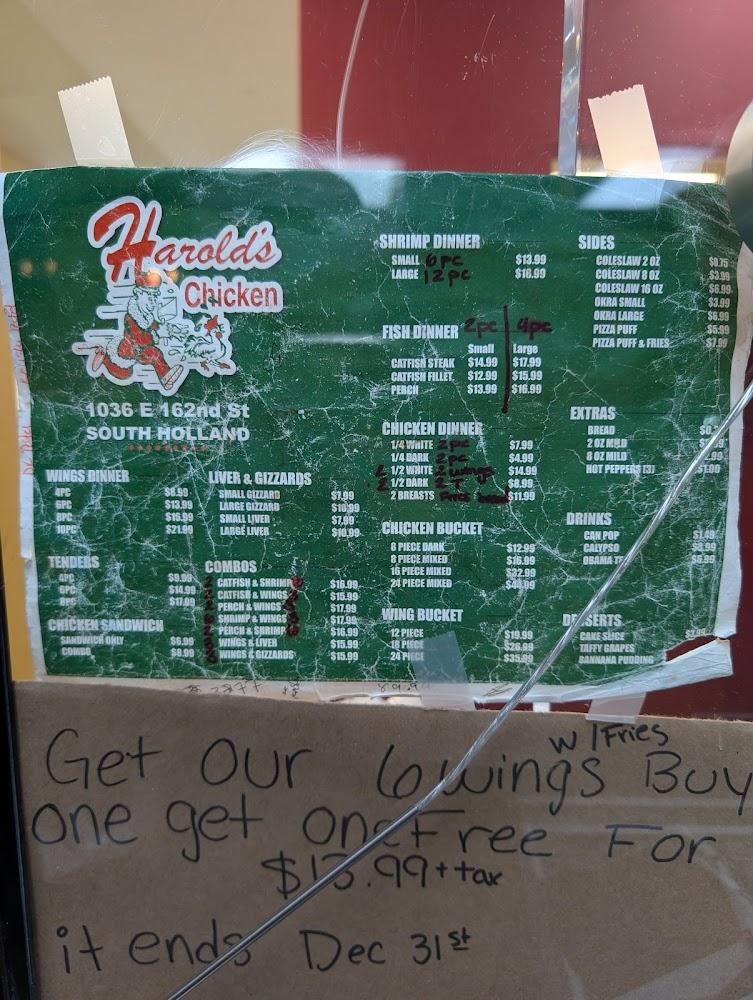 Harold's
Chicken
1036 E 162nd St
SOUTH HOLLAND
WINGS DINNER
4PC $8.99
6PC $13.99
8PC $16.99
10PC $21.99
TENDERS
4PC $9.99
6PC $14.99
8PC $17.99
CHICKEN SANDWICH
SANDWICH ONLY $6.99
COMBO $8.99
LIVER & GIZZARDS
SMALL GIZZARD $7.99
LARGE GIZZARD $10.99
SMALL LIVER $7.99
LARGE LIVER $10.99
COMBOS
CATFISH & SHRIMP $16.99
CATFISH & WINGS $15.99
PERCH & WINGS $17.99
SHRIMP & WINGS $17.99
PERCH & SHRIMP $16.99
WINGS & LIVER $15.99
WINGS & GIZZARDS $15.99
SHRIMP DINNER
SMALL 6pc $13.99
LARGE 12pc $18.99
FISH DINNER 2pc 4pc
Small Large
CATFISH STEAK $14.99 $17.99
CATFISH FILLET $12.99 $15.99
PERCH $13.99 $16.99
CHICKEN DINNER
1/4 WHITE 2pc $7.99
1/4 DARK 2pc $4.99
1/2 WHITE 2 wings $14.99
1/2 DARK 2 T $8.99
2 BREASTS $11.99
CHICKEN BUCKET
8 PIECE DARK $12.99
8 PIECE MIXED $16.99
16 PIECE MIXED $32.99
24 PIECE MIXED
WING BUCKET
12 PIECE $19.99
18 PIECE $26.99
24 PIECE $35.99
SIDES
COLESLAW 2 OZ $0.75
COLESLAW 8 OZ $3.99
COLESLAW 16 OZ $6.99
OKRA SMALL $3.99
OKRA LARGE $6.99
PIZZA PUFF $5.99
PIZZA PUFF & FRIES $7.99
EXTRAS
BREAD
2 OZ MILD
8 OZ MILD
HOT PEPPERS (3) $1.00
DRINKS
CAN POP $1.49
CALYPSO
OBAMA
DESSERTS
CAKE SLICE
TAFFY GRAPES
BANNANA PUDDING
Get our 6 wings w/Fries Buy
one get one Free For
$13.99 + tax
it ends Dec 31st